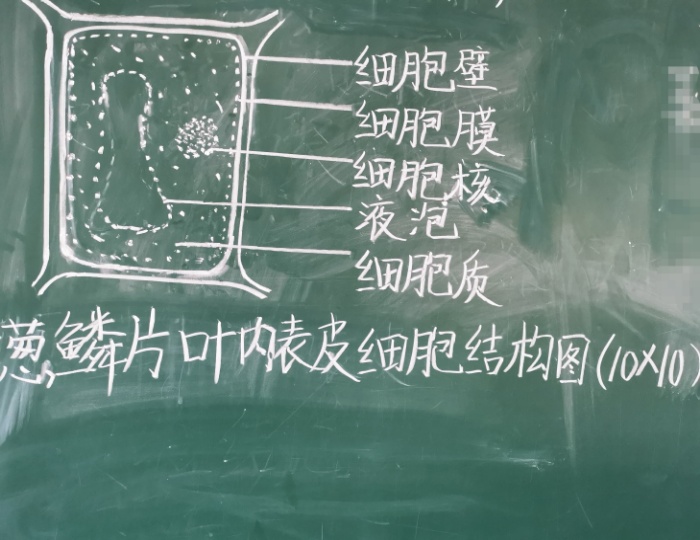 细胞壁
细胞膜
细胞核
液泡
细胞质
葱鳞片叶内表皮细胞结构图(10×10)